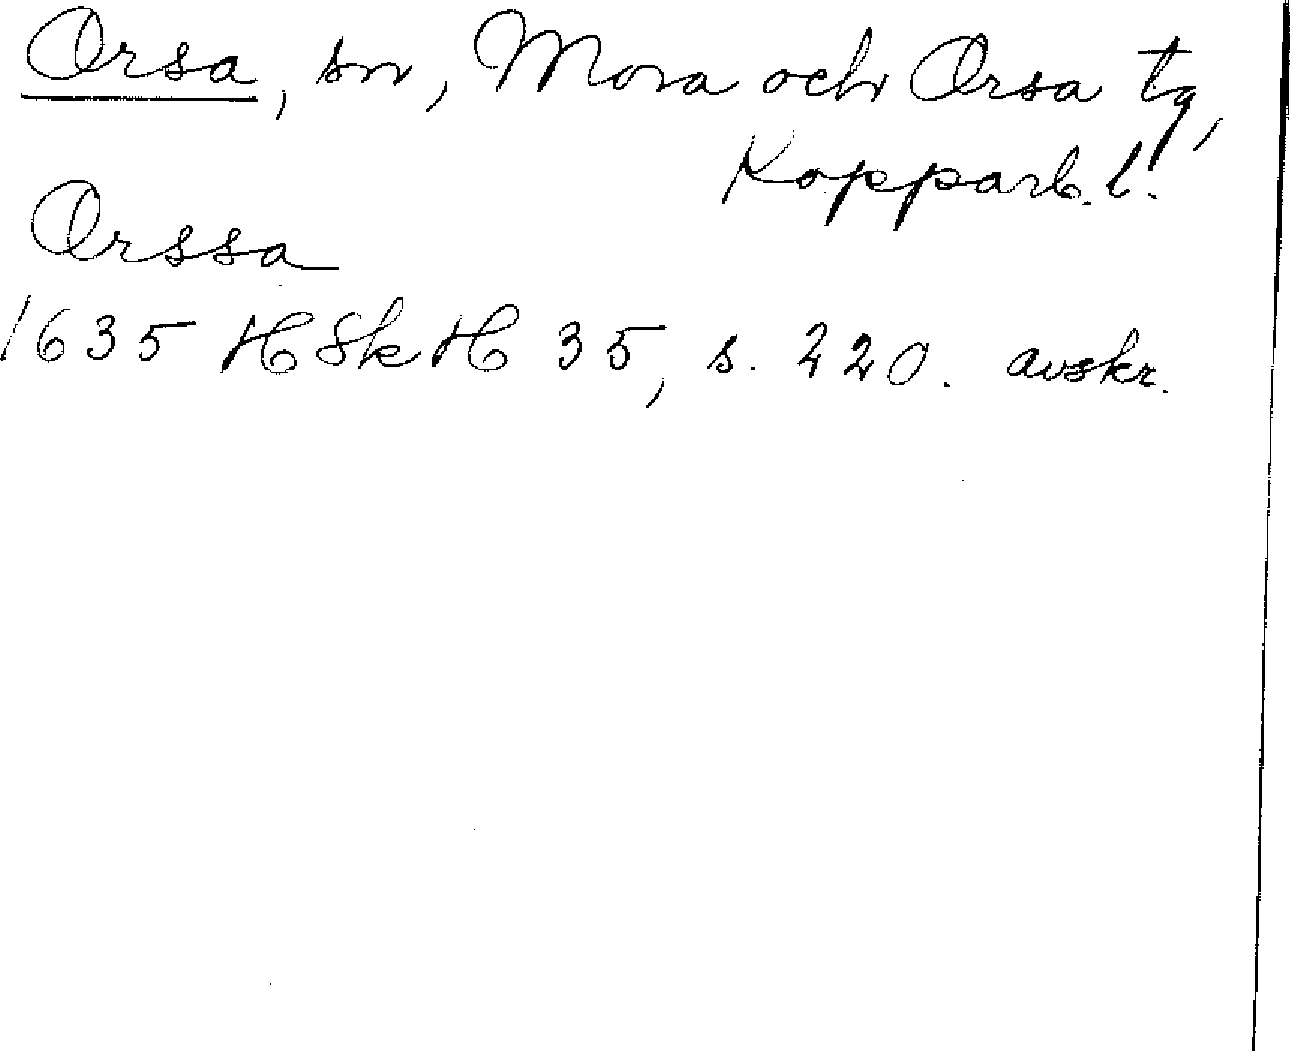 Orsa, sn, Mora och Orsa tg,
Kopparb. l.
Orssa
1635 HSkH 35, s. 220. avskr.